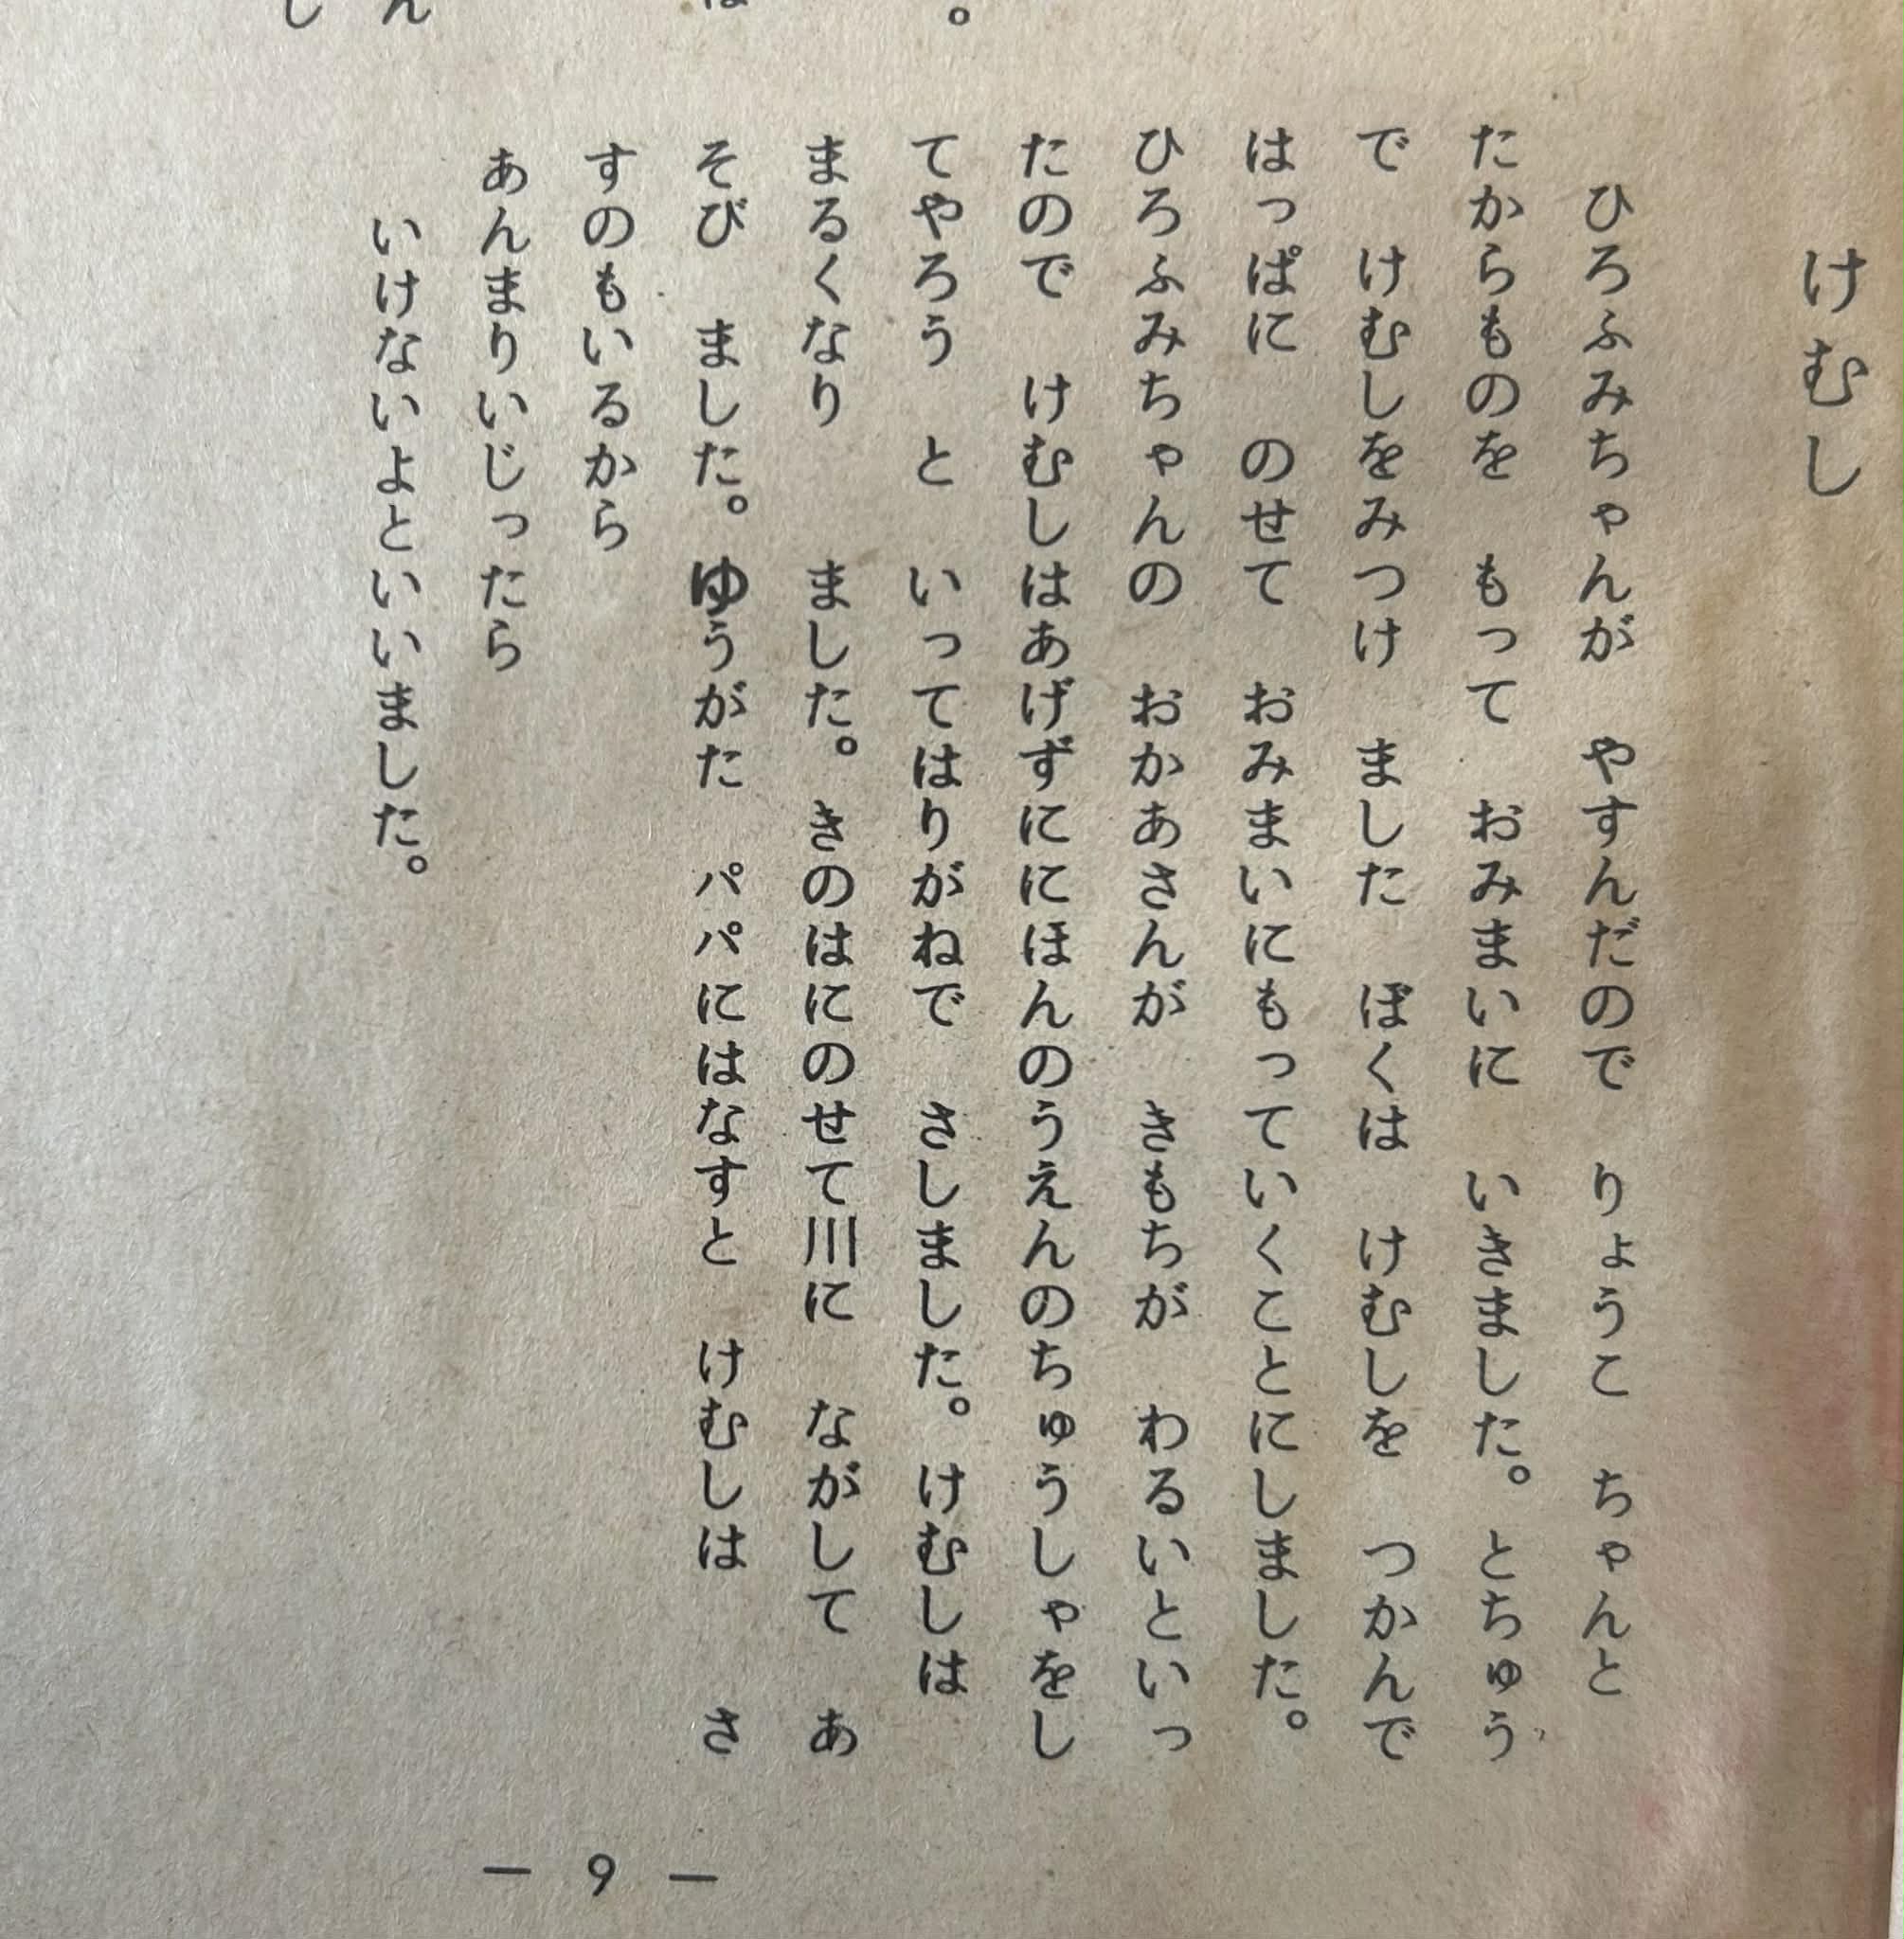 けむし
ひろふみちゃんが　やすんだので　りょうこ　ちゃんと
たからものを　もって　おみまいに　いきました。とちゅう
で　けむしをみつけ　ました　ぼくは　けむしを　つかんで
はっぱに　のせて　おみまいにもっていくことにしました。
ひろふみちゃんの　おかあさんが　きもちが　わるいといっ
たので　けむしはあげずににほんのうえんのちゅうしゃをし
てやろう　と　いってはりがねで　さしました。けむしは
まるくなり　　ました。きのはにのせて川に　ながして　あ
そび　ました。ゆうがた　パパにはなすと　けむしは　　さ
すのもいるから
あんまりいじったら
いけないよといいました。
— 9 —